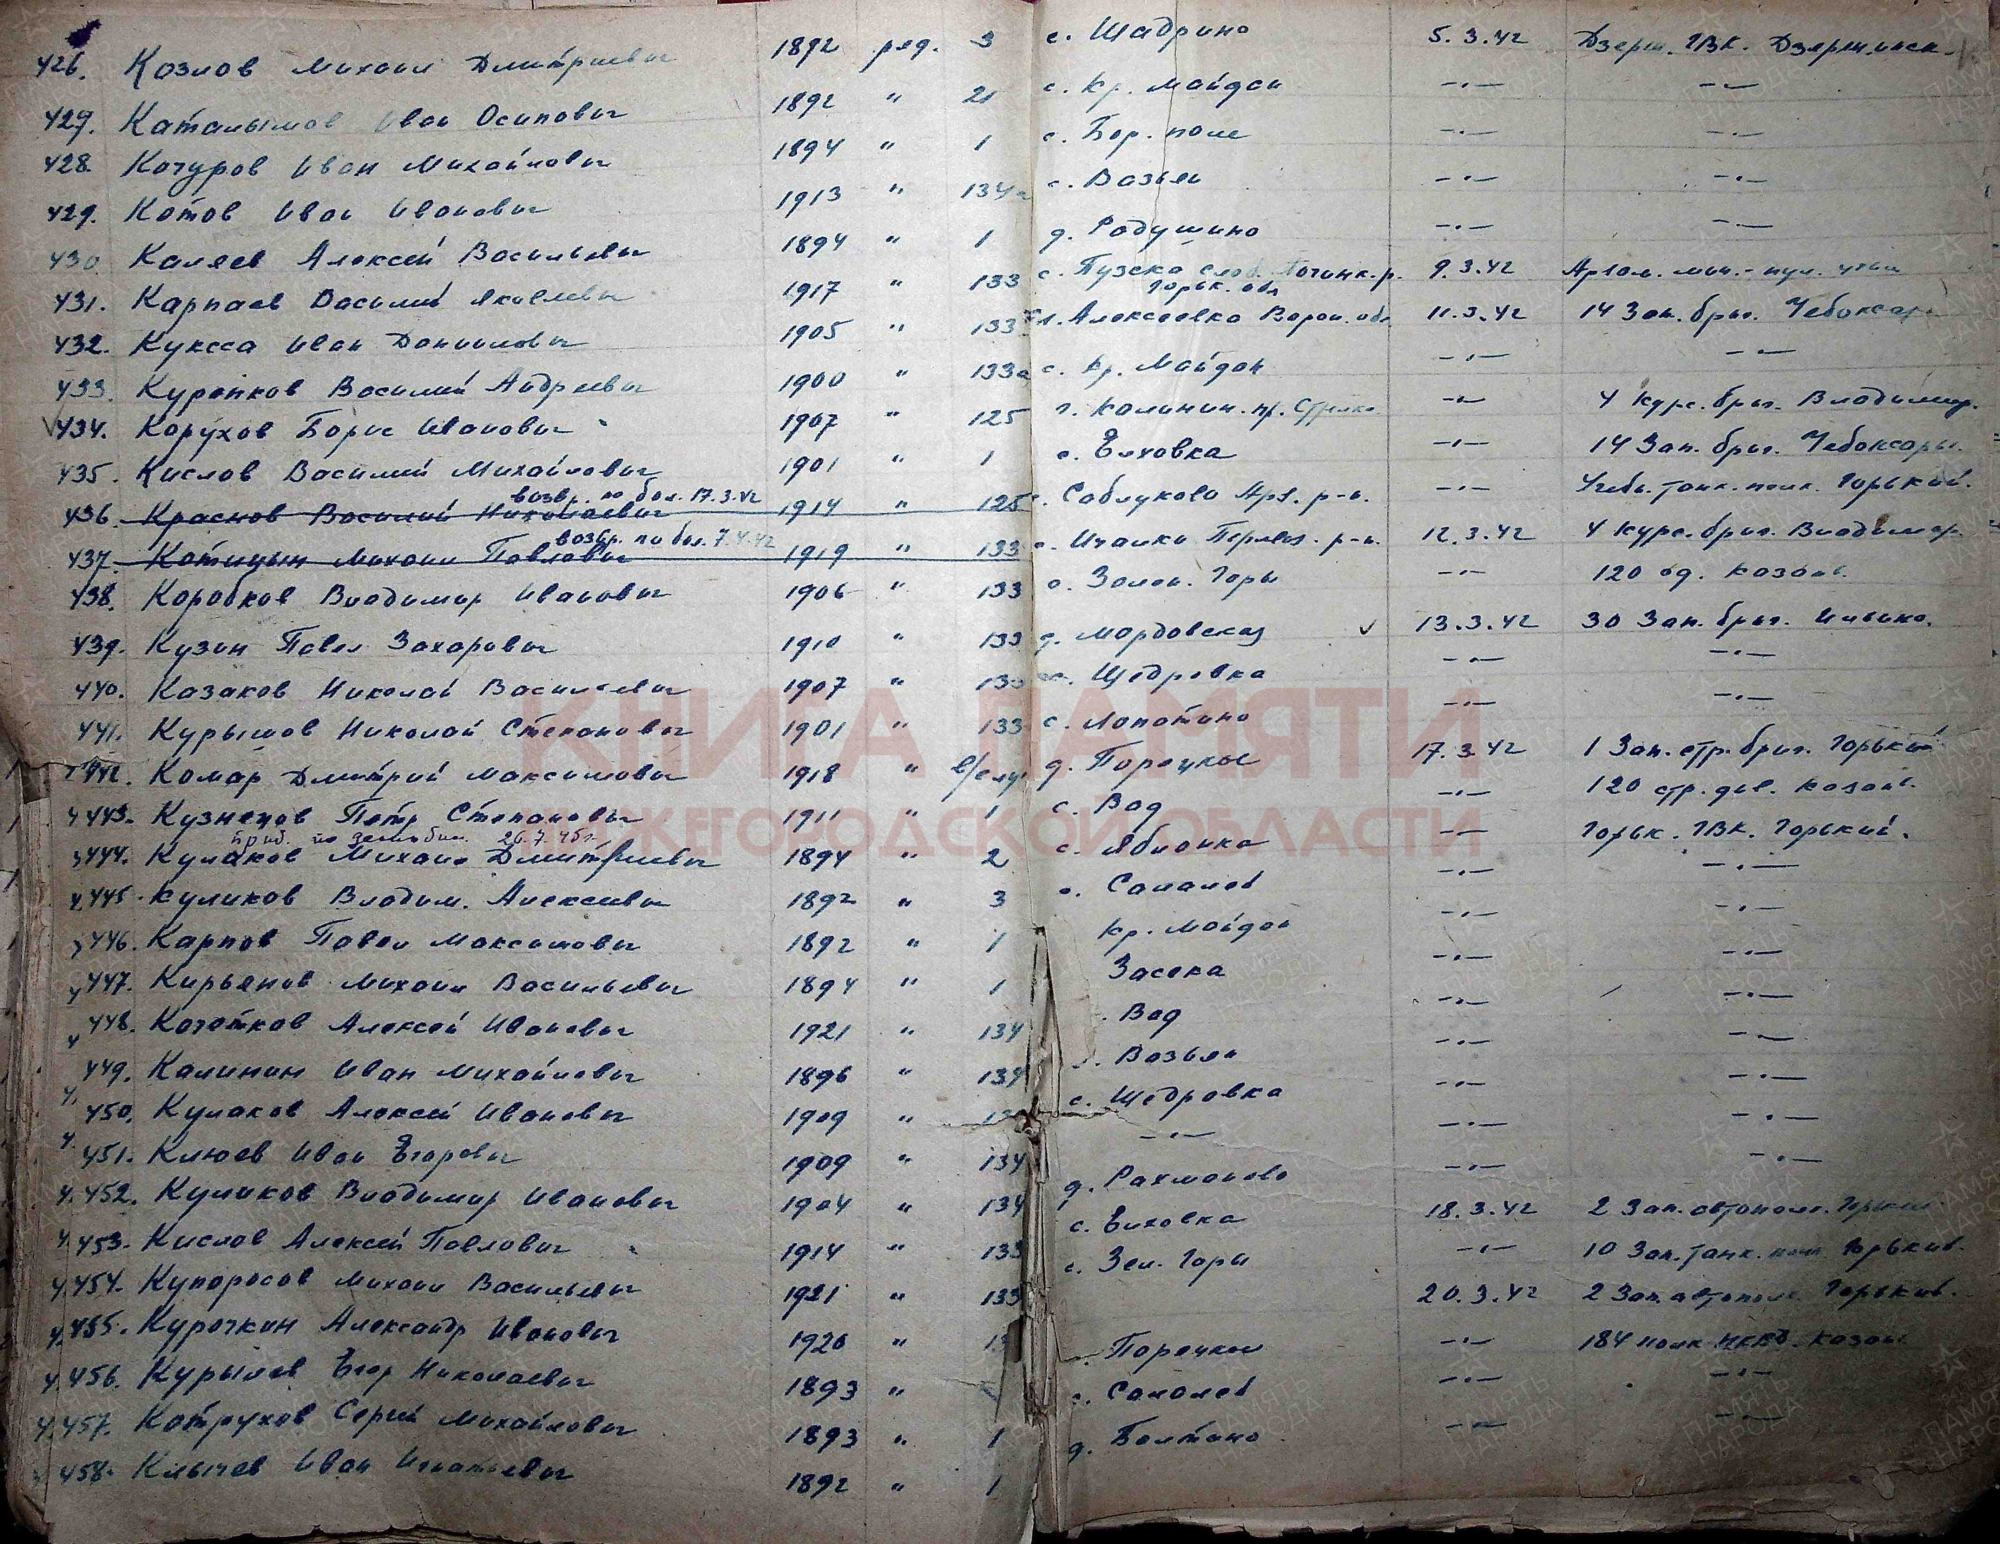 426. Козлов Михаил Дмитриевич 1892 ряд. 3 с. Шадрино 5.3.42 Дзерж. ГВК. Дзержинск
427. Иван Осипович 1892 " 21 с. Кр. Майдан -"- -"-
428. Кочуров Иван Михайлович 1894 " 1 с. Бор. поле -"- -"-
429. Котов Иван Иванович 1913 " 134 с. Вазьян -"- -"-
430 Каляев Алексей Васильевич 1894 " 1 д. Радушино -"- -"-
431. Карпаев Василий Яковлевич 1917 " 133 с. Пузска слоб. Починк. р. Горьк. обл 9.3.42 Арзам.
432. Кукса Иван Данилович 1905 " 133 Алексеевка Ворон. обл 11.3.42 14 Зап. бриг. Чебоксар
433. Куренков Василий Андреевич 1900 " 133а с. Кр. Майдан -"- -"-
434. Корухов Борис Иванович 1907 " 125 г. Калинин. пр. Стрелка -"- 4 Курс. бриг. Владимир.
435. Кислов Василий Михайлович 1901 " 1 с. Елховка -"- 14 Зап. бриг. Чебоксары.
возвр. по бол. 17.3.42
436. Краснов Василий Николаевич 1914 " 125 Саблуково Арз. р-н. -"- Учебн. танк. полк. Горький.
возвр. по бол. 7.4.42
437. Котицын Михаил Павлович 1919 " 133 с. Ичалки Перевоз. р-н. 12.3.42 4 Курс. бриг. Владимир.
438. Коробков Владимир Иванович 1906 " 133 с. Зелен. Горы -"- 120 сд. Казань.
439. Кузин Павел Захарович 1910 " 133 д. Мордовская 13.3.42 30 Зап. бриг. Ильино.
440. Казаков Николай Васильевич 1907 " 133 Щедровка -"- -"-
441. Курышов Николай Степанович 1901 " 133 с. Лопатино -"- -"-
442. Комар Дмитрий Максимович 1918 " в/служ д. Порецкое 17.3.42 1 Зап. стр. бриг. Горький
443. Кузнецов Петр Степанович 1911 " 1 с. Вад -"- 120 стр. див. Казань.
приб. по демобил. 26.7.45г.
444. Кулаков Михаил Дмитриевич 1894 " 2 с. Яблонка -"- Горьк. ГВК. Горький.
445. Куликов Владим. Алексеевич 1892 " 3 с. Салалей -"- -"-
446. Карпов Павел Максимович 1892 " 1 Кр. Майдан -"- -"-
447. Кирьянов Михаил Васильевич 1894 " 1 Засека -"- -"-
448. Кочетков Алексей Иванович 1921 " 134 Вад -"- -"-
449. Калинин Иван Михайлович 1896 " 134 Вазьян -"- -"-
450. Кулаков Алексей Иванович 1909 " с. Щедровка -"- -"-
451. Клюев Иван Егорович 1909 " 134 -"- -"- -"-
452. Куликов Владимир Иванович 1904 " 134 д. Рахманово -"- -"-
453. Кислов Алексей Павлович 1914 " 133 с. Елховка 18.3.42 2 Зап. автополк. Горький
454. Купоросов Михаил Васильевич 1921 " 133 с. Зел. Горы -"- 10 Зап. танк. полк Горький.
455. Курочкин Александр Иванович 1920 " 20.3.42 2 Зап. автополк. Горький.
456. Курылев Егор Николаевич 1893 " Порецкое -"- 184 полк НКВД. Казань
457. Котрухов Сергей Михайлович 1893 " 1 с. Салалей -"- -"-
458. Клычев Иван Игнатьевич 1892 " 1 д. Болтино -"- -"-
КНИГА ПАМЯТИ
НИЖЕГОРОДСКОЙ ОБЛАСТИ
ПАМЯТЬ НАРОДА